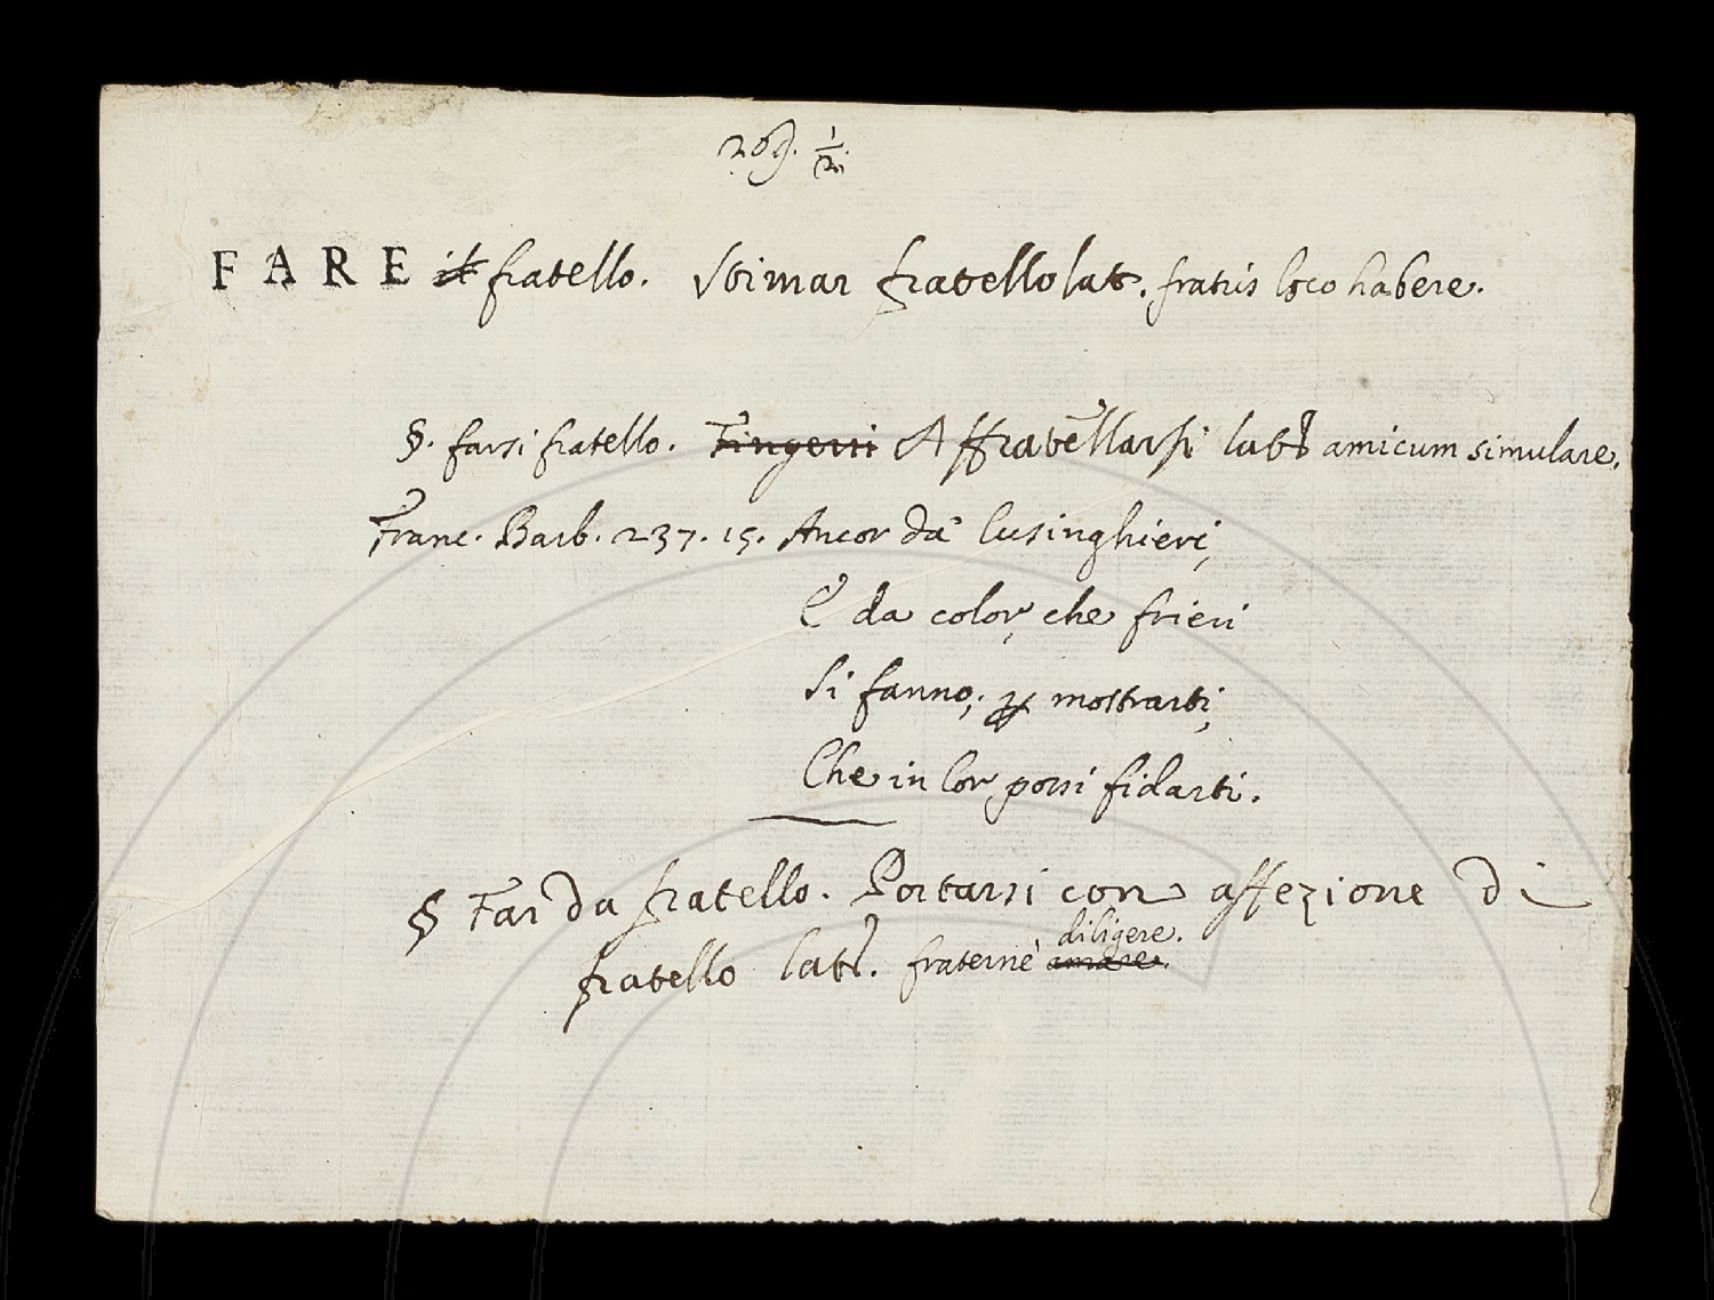 209. 1/2.
FARE il fratello. Stimar fratello lat. fratris loco habere.
§. farsi fratello. Fingersi Affratellarsi lat. amicum simulare.
Franc. Barb. 237. 15. Ancor da' lusinghieri,
E da color, che frieri
Si fanno; p mostrarti,
Che in lor possi fidarti.
§ Far da fratello. Portarsi con affezione di
diligere.
fratello lat. fraternè amare.